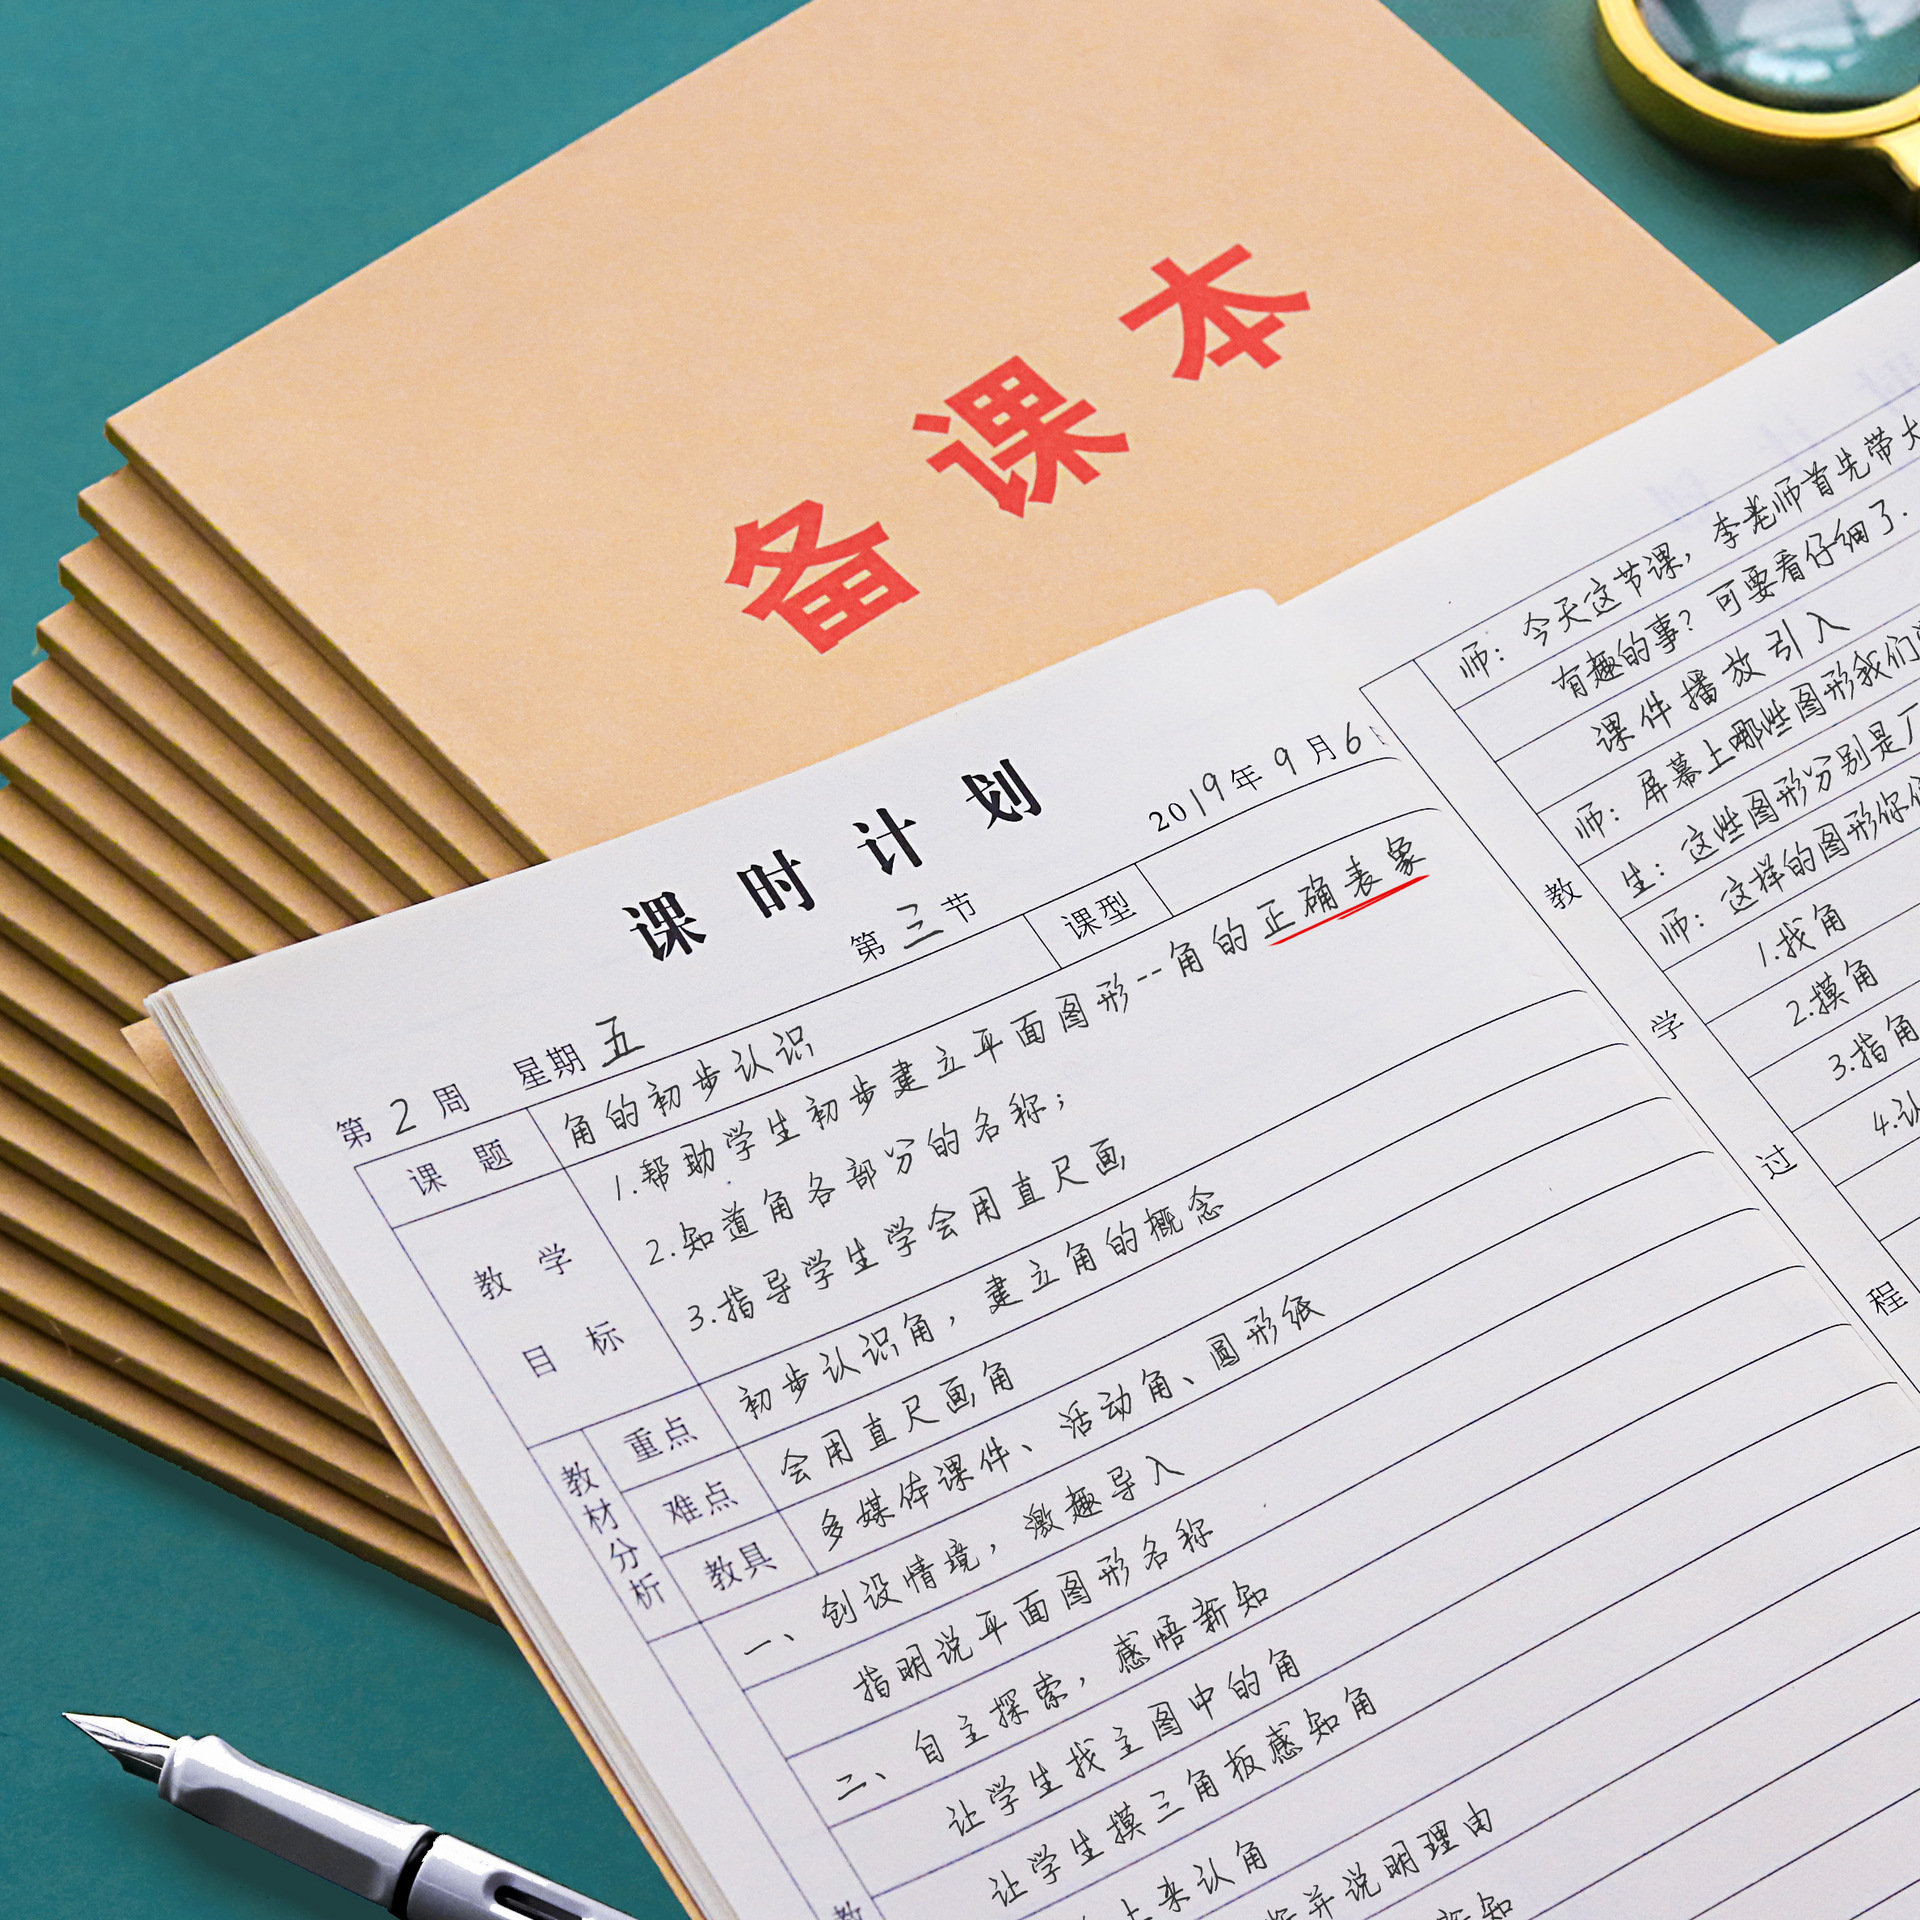 备课本
课时计划
2019年9月6
第2周 星期五 第三节 课型
课题 角的初步认识
教学目标
1.帮助学生初步建立平面图形--角的正确表象
2.知道角各部分的名称;
3.指导学生学会用直尺画
教材分析
重点 初步认识角,建立角的概念
难点 会用直尺画角
教具 多媒体课件、活动角、圆形纸
一、创设情境,激趣导入
指明说平面图形名称
二、自主探索,感悟新知
让学生找主图中的角
让学生摸三角板感知角
上来认角
并说明理由
新知
教
教学过程
师:今天这节课,李老师首先带大
有趣的事?可要看仔细了.
课件播放引入
师:屏幕上哪些图形我们
生:这些图形分别是
师:这样的图形你们
1.找角
2.摸角
3.指角
4.认